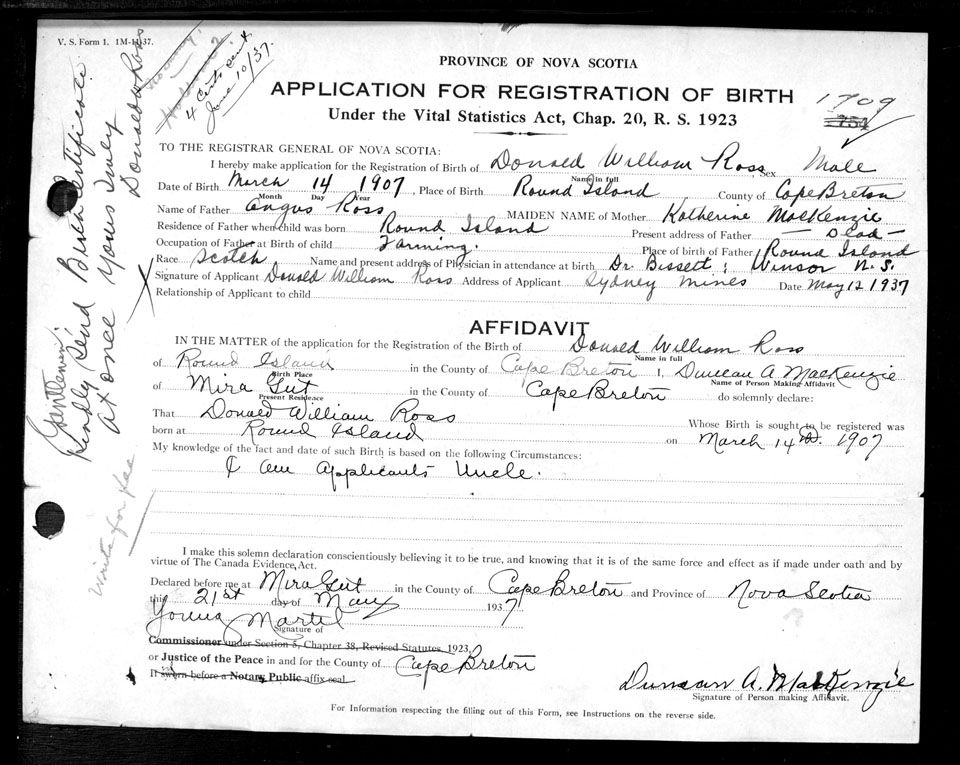 V. S. Form 1. 1M-11-37.
4 Certs sent
June 10/37.
PROVINCE OF NOVA SCOTIA
APPLICATION FOR REGISTRATION OF BIRTH
1709
Under the Vital Statistics Act, Chap. 20, R. S. 1923
754
TO THE REGISTRAR GENERAL OF NOVA SCOTIA:
I hereby make application for the Registration of Birth of Donald William Ross Sex Male
Name in full
Date of Birth March 14 1907, Place of Birth Round Island County of Cape Breton
Month Day Year
Name of Father Angus Ross MAIDEN NAME of Mother Katherine MacKenzie
Residence of Father when child was born Round Island Present address of Father — Dead —
Occupation of Father at Birth of child Farming. Place of birth of Father Round Island
Race Scotch Name and present address of Physician in attendance at birth Dr. Bissett; Winsor N.S.
Signature of Applicant Donald William Ross Address of Applicant Sydney Mines Date May 12 1937
Relationship of Applicant to child
AFFIDAVIT
IN THE MATTER of the application for the Registration of the Birth of Donald William Ross
Name in full
of Round Island in the County of Cape Breton I, Duncan A. MacKenzie
Birth Place Name of Person Making Affidavit
of Mira Gut in the County of Cape Breton do solemnly declare:
Present Residence
That Donald William Ross Whose Birth is sought to be registered was
born at Round Island on March 14th. 1907
My knowledge of the fact and date of such Birth is based on the following Circumstances:
I am applicants Uncle.
I make this solemn declaration conscientiously believing it to be true, and knowing that it is of the same force and effect as if made under oath and by
virtue of The Canada Evidence Act.
Declared before me at Mira Gut in the County of Cape Breton and Province of Nova Scotia
this 21st day of May 1937
Young Martel
Signature of
Commissioner under Section 5, Chapter 38, Revised Statutes 1923,
or Justice of the Peace in and for the County of Cape Breton
If sworn before a Notary Public affix seal.
Duncan A. MacKenzie
Signature of Person making Affidavit.
For Information respecting the filling out of this Form, see Instructions on the reverse side.
Gentlemen;
Kindly Send Birth Certificate
at once Yours Truly
Donald W Ross
Write for fee